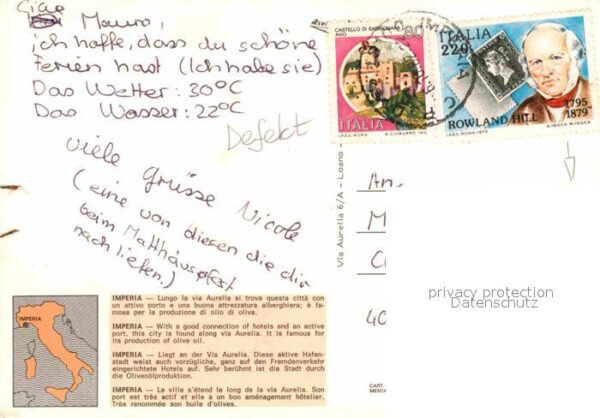 Ciao
Mauro,
ich hoffe, dass du schöne
Ferien hast (Ich habe sie)
Das Wetter: 30°C
Das Wasser: 22°C
Defekt
viele Grüsse Nicole
(eine von diesen die dir
beim Matthäusfest
nachliefen.)
CASTELLO DI SABBIONARA
AVIO
80
ITALIA
I.P.Z.S. ROMA
ITALIA
220
1795
1879
ROWLAND HILL
I.P.Z.S.-ROMA-1979
Via Aurelia 6/A - Loano -
M
40
privacy protection
Datenschutz
IMPERIA
IMPERIA — Lungo la via Aurelia si trova questa città con
un attivo porto e una buona attrezzatura alberghiera; è fa-
mosa per la produzione di olio di oliva.
IMPERIA — With a good connection of hotels and an active
port, this city is found along via Aurelia. It is famous for
its production of olive oil.
IMPERIA — Liegt an der Via Aurelia. Diese aktive Hafen-
stadt weist auch vorzügliche, ganz auf den Fremdenverkehr
eingerichtete Hotels auf. Sehr berühmt ist die Stadt durch
die Olivenölproduktion.
IMPERIA — La ville s'étend le long de la via Aurelia. Son
port est très actif et elle a un bon aménagement hôtelier.
Très renommée son huile d'olives.